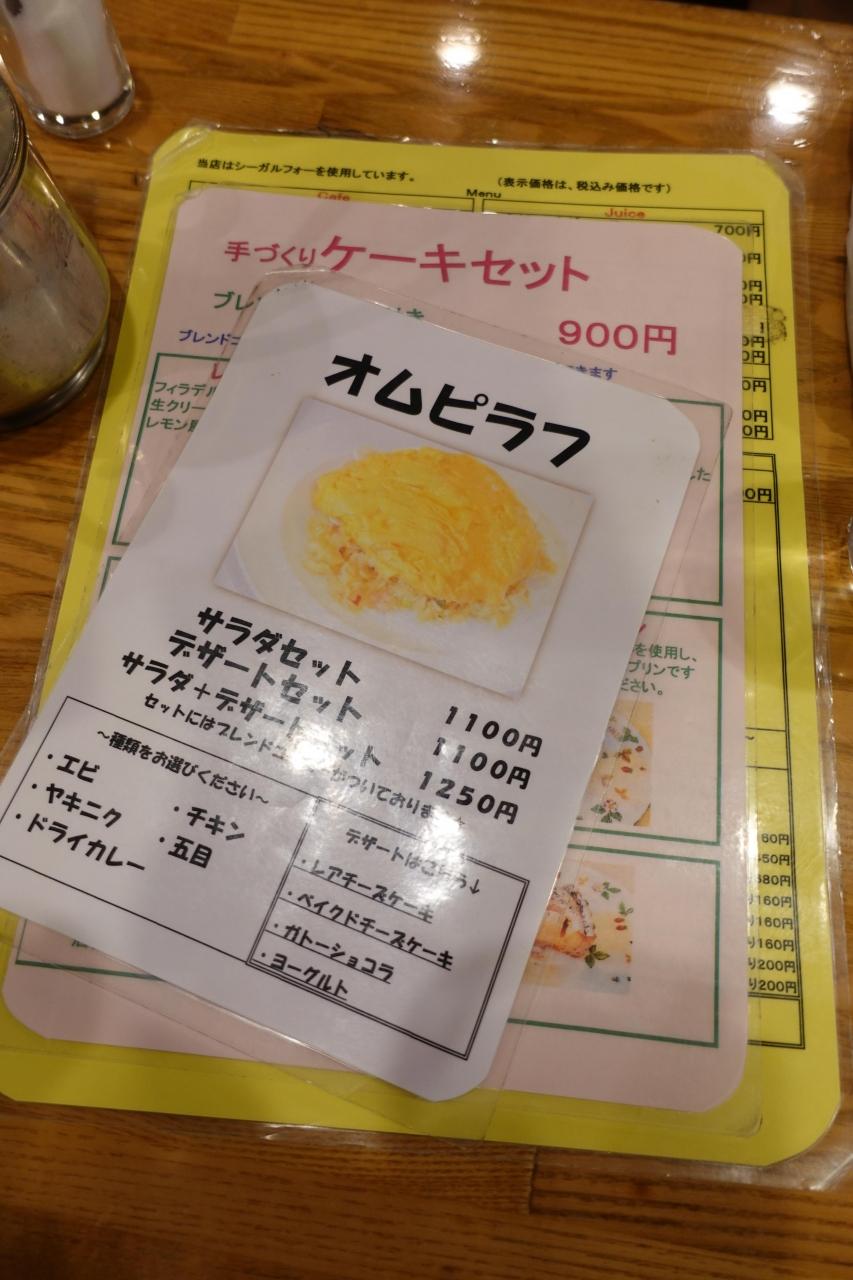 当店はシーガルフォーを使用しています。
(表示価格は、税込み価格です)
Menu
Cafe
Juice
700円
手づくりケーキセット
900円
ブレンド
きます
フィラデル
生クリー
レモン
した
を使用し、
プリンです
ださい。
オムピラフ
サラダセット 1100円
デザートセット 1100円
サラダ+デザートセット 1250円
セットにはブレンドコ がついております
~種類をお選びください~
・エビ ・チキン
・ヤキニク ・五目
・ドライカレー
デザートはこちら↓
・レアチーズケーキ
・ベイクドチーズケーキ
・ガトーショコラ
・ヨーグルト
60円
450円
680円
り160円
り160円
り160円
り200円
り200円